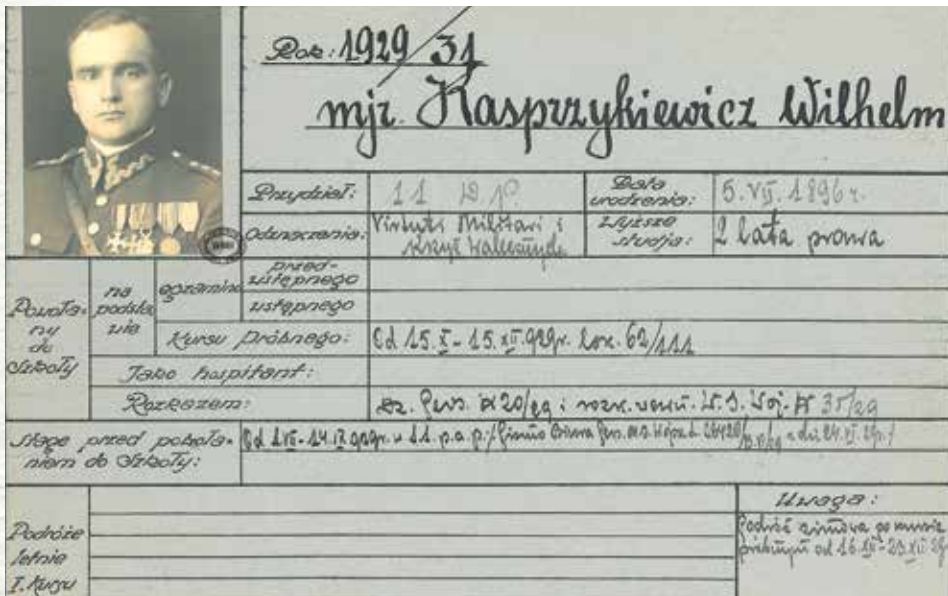 Rok: 1929/31
mjr. Kasprzykiewicz Wilhelm
Przydział: 11 D.P. Data urodzenia: 5. VII. 1896 r.
Odznaczenia: Virtuti Militari i Krzyż Walecznych Wyższe studja: 2 lata prawa
Powoła-
ny
do
Szkoły
na
podsta
wie
egzaminu
przed-
wstępnego
wstępnego
Kursu próbnego: Od 15.X - 15.XII.929r. lok. 62/111
Jako hospitant:
Rozkazem: Dz. Pers. № 20/29 i rozk. wewn. W.S.Woj. № 35/29
Staże przed powoła-
niem do Szkoły: Od 1.VII - 14.IX.929r. w 11. p.a.p.
Podróże
letnie
I. Kursu
Uwaga:
Podróż zimowa po kursie
próbnym od 16.XII - 23.XII 29r